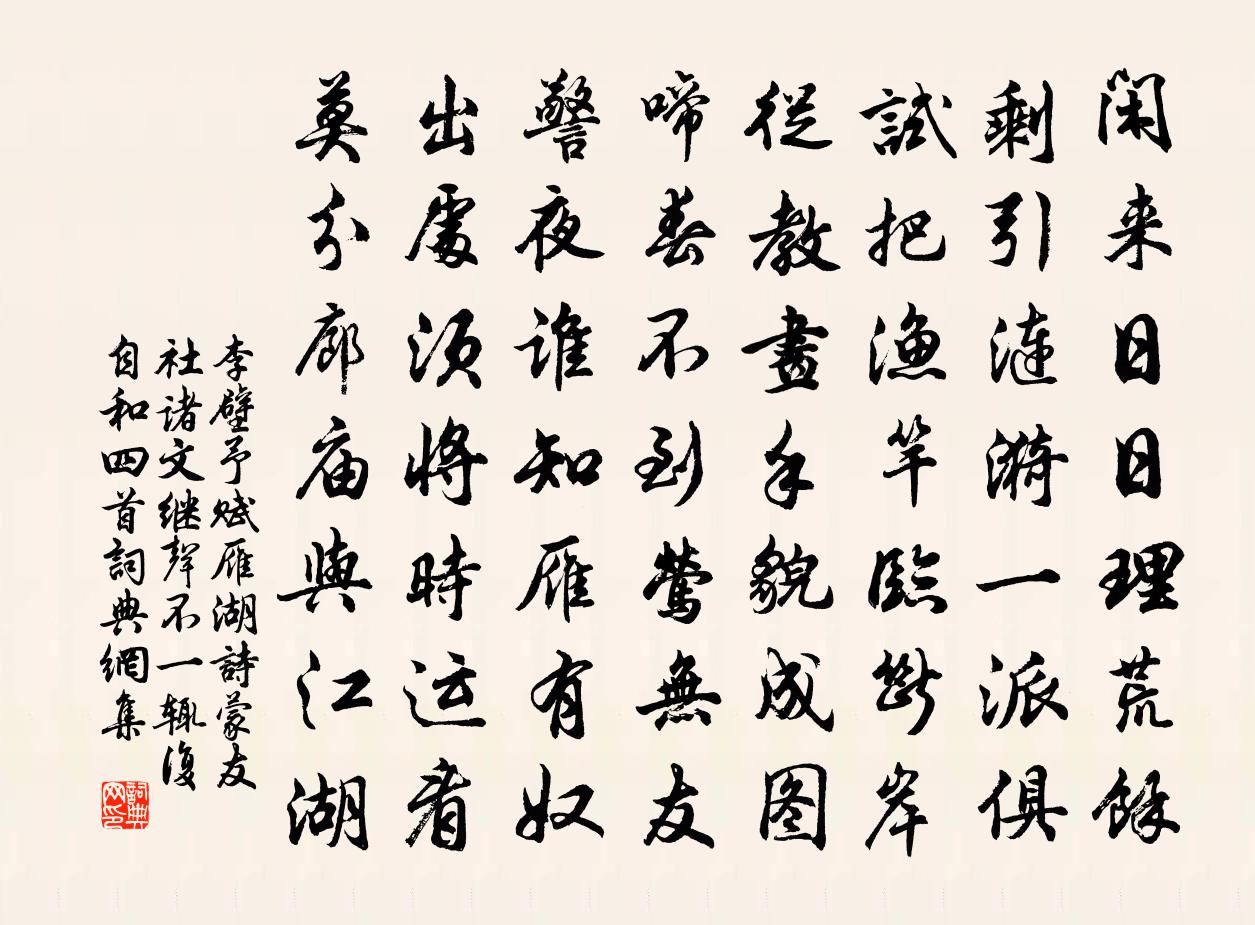 閑来日日理荒餘
剩引漣漪一派俱
試把漁竿臨斷岸
從教畫手貌成图
啼春不到鶯無友
警夜谁知雁有奴
出處须將時运看
莫分廊庙與江湖
李壁予赋雁湖詩蒙友
社诸文继聲不一辄復
自和四首詞典網集
詞典网印